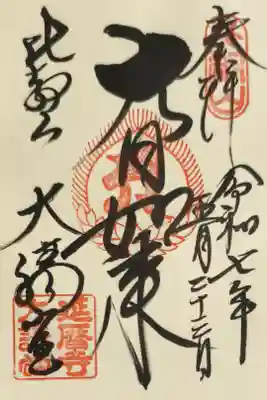 奉拝
令和七年
五月二十二日
大日如来
比叡山
大講堂
延暦寺